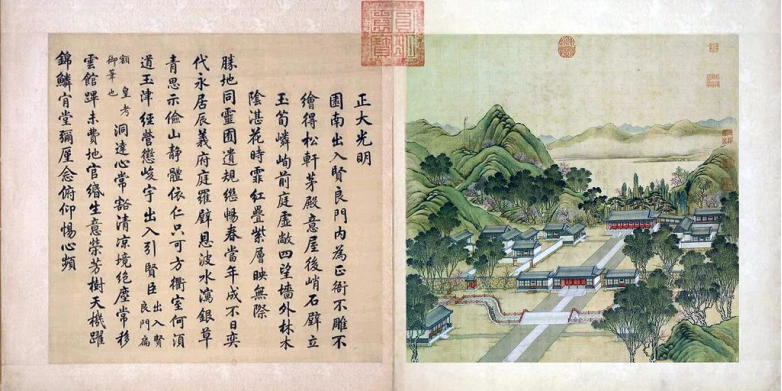 正大光明
園南出入賢良門内為正衙不雕不
繪得松軒茅殿意屋後峭石壁立
玉筍嶙峋前庭虛敞四望墻外林木
陰湛花時霏紅疊紫層映無際
勝地同靈囿遺規繼暢春當年成不日奕
代永居辰義府庭羅璧恩波水瀉銀草
青思示儉山靜體依仁只可方衢室何須
道玉津經營懲峻宇出入引賢臣出入賢良門扁
額皇考御筆也洞達心常豁清涼境絶塵常移
雲館蹕未費地官緡生意榮芳樹天機躍
錦鱗肯堂彌厪念俯仰惕心頻